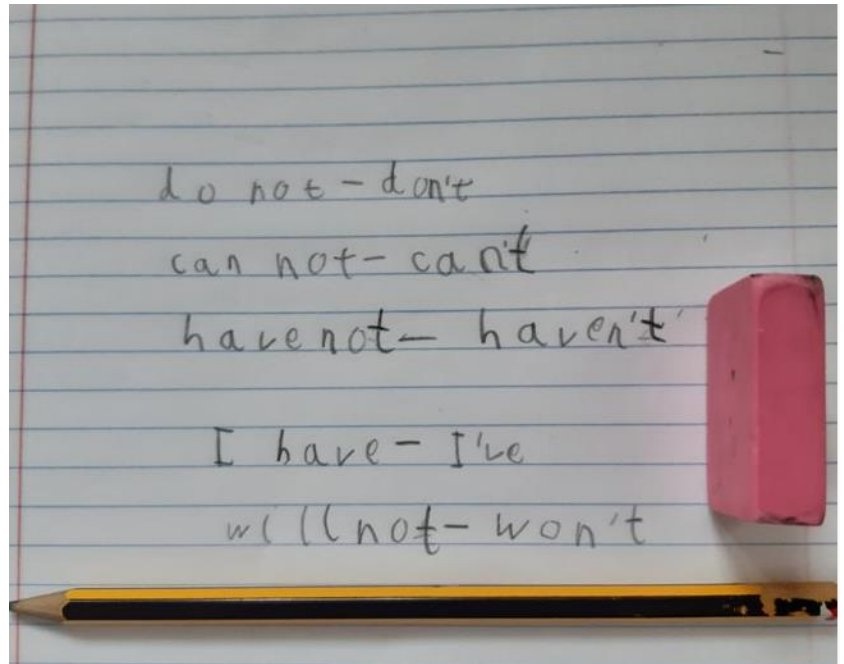 do not - don't
can not - can't
have not - haven't
I have - I've
will not - won't